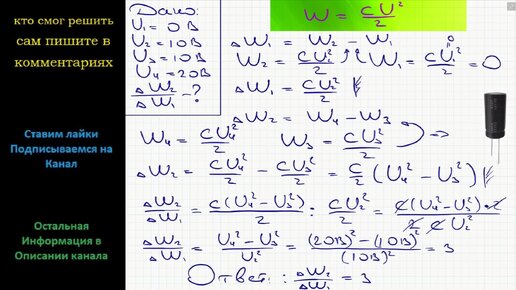 кто смог решить
сам пишите в
комментариях
Ставим лайки
Подписываемся на
Канал
Остальная
Информация в
Описании канала
Дано:
U₁ = 0 В
U₂ = 10 В
U₃ = 10 В
U₄ = 20 В
ΔW₂/ΔW₁ - ?
W = CU²/2
ΔW₁ = W₂ - W₁
W₂ = CU₂²/2 W₁ = CU₁²/2 = 0
0
ΔW₁ = CU₂²/2
ΔW₂ = W₄ - W₃
W₄ = CU₄²/2 W₃ = CU₃²/2
ΔW₂ = CU₄²/2 - CU₃²/2 = C/2 (U₄² - U₃²)
ΔW₂/ΔW₁ = C(U₄² - U₃²)/2 : CU₂²/2 = C(U₄² - U₃²)·2/2·C U₂²
ΔW₂/ΔW₁ = U₄² - U₃²/U₂² = (20В)² - (10В)²/(10В)² = 3
Ответ: ΔW₂/ΔW₁ = 3